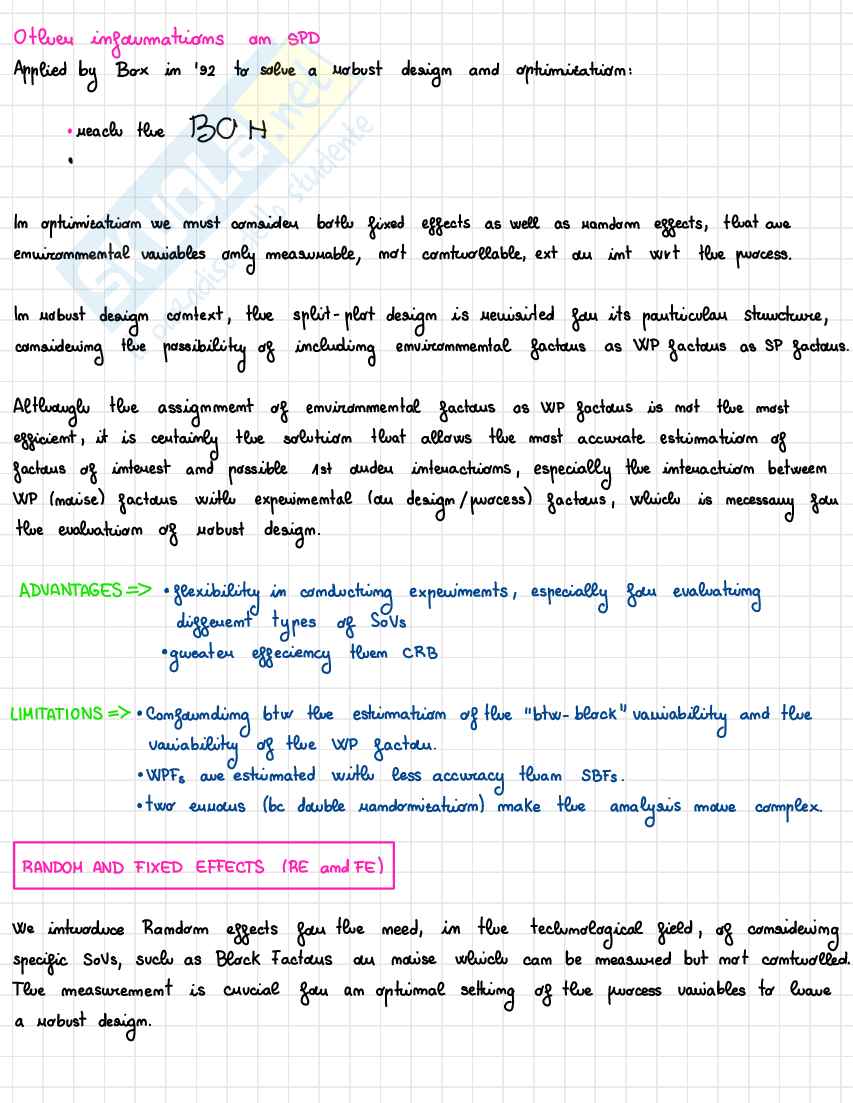 Other informations on SPD
Applied by Box in '92 to solve a robust design and optimization:
• reach the BOH
•
In optimization we must consider both fixed effects as well as random effects, that are
environmental variables only measurable, not controllable, ext or int wrt the process.
In robust design context, the split-plot design is revisited for its particular structure,
considering the possibility of including environmental factors as WP factors as SP factors.
Although the assignment of environmental factors as WP factors is not the most
efficient, it is certainly the solution that allows the most accurate estimation of
factors of interest and possible 1st order interactions, especially the interaction between
WP (noise) factors with experimental (or design/process) factors, which is necessary for
the evaluation of robust design.
ADVANTAGES => • flexibility in conducting experiments, especially for evaluating
different types of SoVs
• greater effeciency them CRB
LIMITATIONS => • Confounding btw the estimation of the "btw-block" variability and the
variability of the WP factor.
• WPFs are estimated with less accuracy than SBFs.
• two errors (bc double randomization) make the analysis more complex.
RANDOM AND FIXED EFFECTS (RE and FE)
We introduce Random effects for the need, in the technological field, of considering
specific SoVs, such as Block Factors or noise which can be measured but not controlled.
The measurement is crucial for an optimal setting of the process variables to have
a robust design.
SKUOLA.net
paradiso dello studente